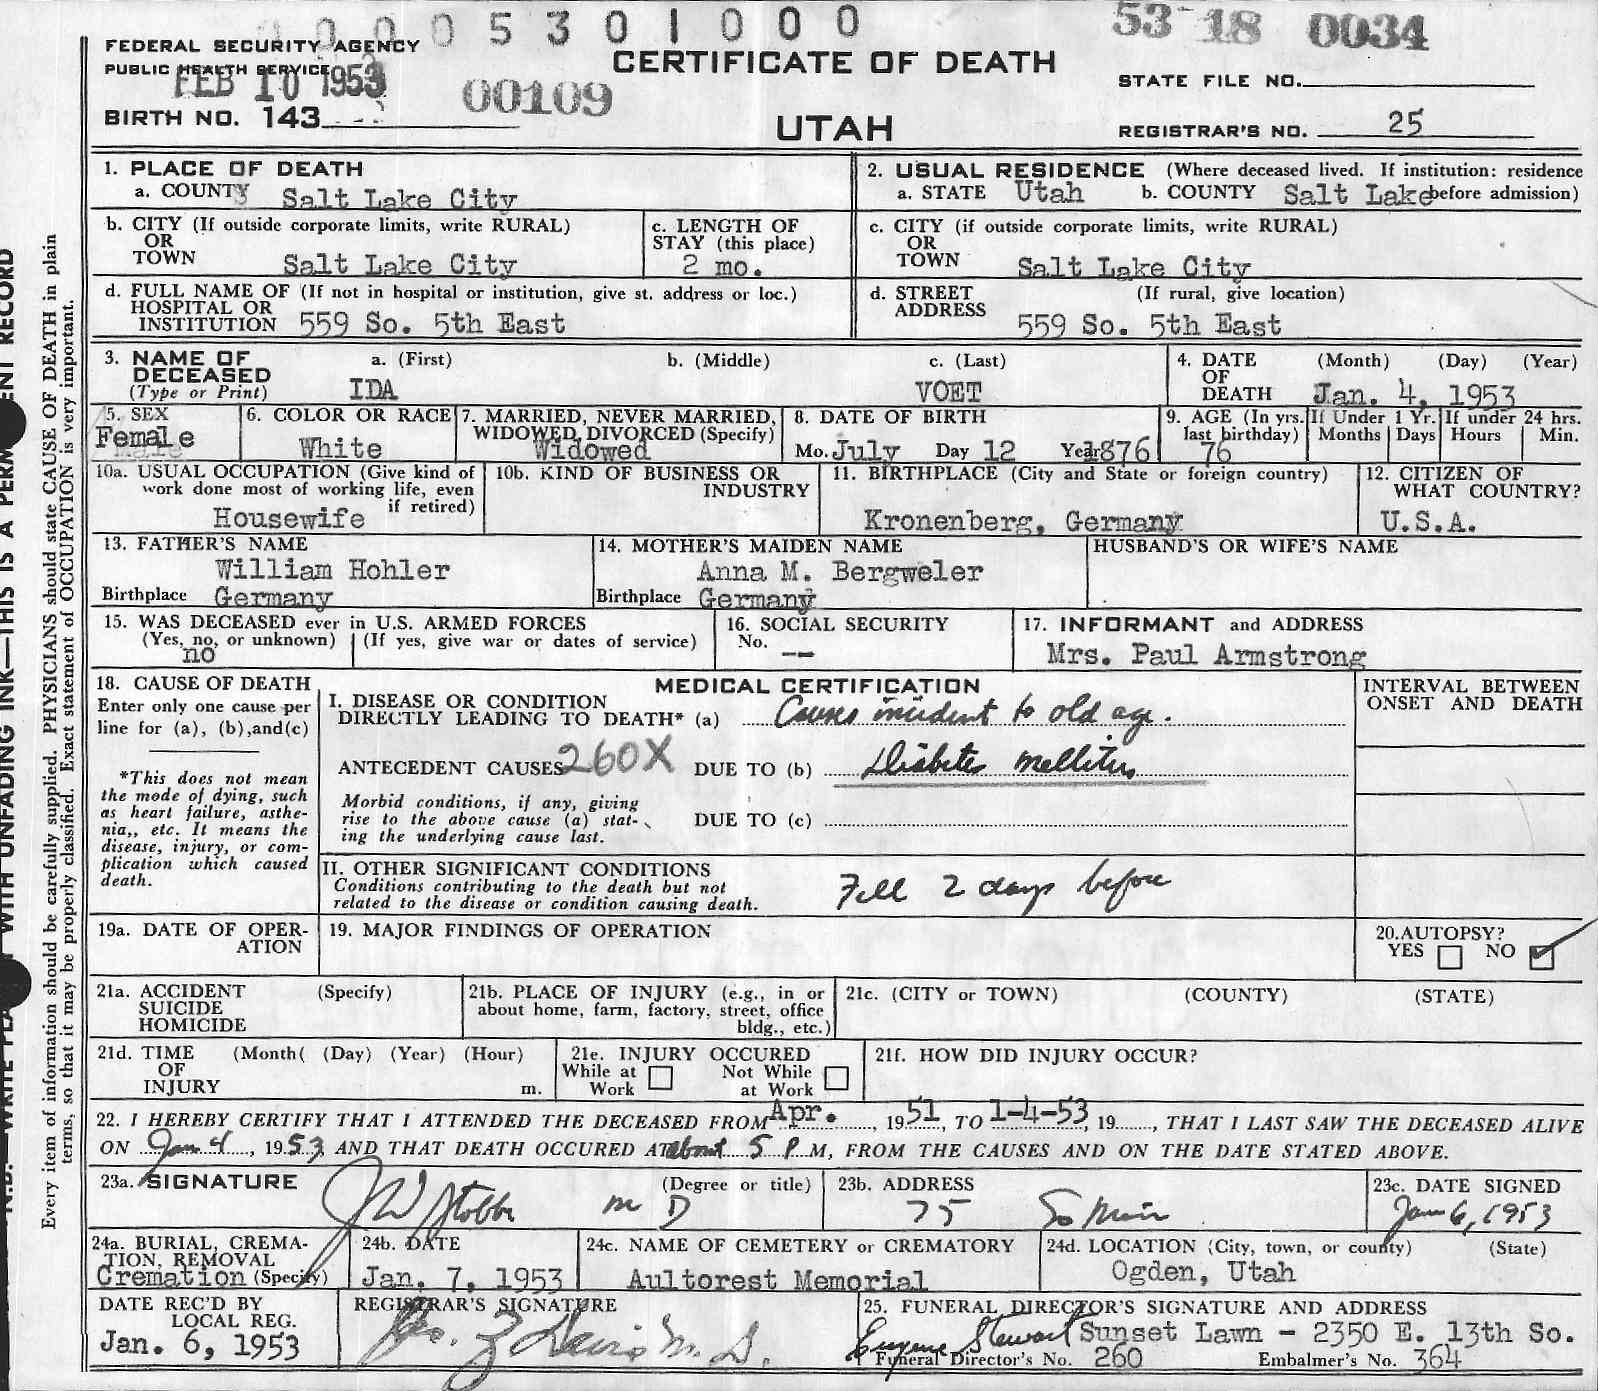 1 0 0 0 5 3 0 1 0 0 0
53-18 0034
FEDERAL SECURITY AGENCY
PUBLIC HEALTH SERVICE
FEB 10 1953
CERTIFICATE OF DEATH
STATE FILE NO.
BIRTH NO. 143
00109
UTAH
REGISTRAR'S NO. 25
1. PLACE OF DEATH
a. COUNTY Salt Lake City
2. USUAL RESIDENCE (Where deceased lived. If institution: residence
a. STATE Utah b. COUNTY Salt Lake before admission)
b. CITY (If outside corporate limits, write RURAL)
OR
TOWN Salt Lake City
c. LENGTH OF
STAY (this place)
2 mo.
c. CITY (if outside corporate limits, write RURAL)
OR
TOWN Salt Lake City
d. FULL NAME OF (If not in hospital or institution, give st. address or loc.)
HOSPITAL OR
INSTITUTION 559 So. 5th East
d. STREET (If rural, give location)
ADDRESS
559 So. 5th East
3. NAME OF a. (First) b. (Middle) c. (Last)
DECEASED
(Type or Print) IDA VOET
4. DATE (Month) (Day) (Year)
OF
DEATH Jan. 4, 1953
5. SEX
Female
6. COLOR OR RACE
White
7. MARRIED, NEVER MARRIED,
WIDOWED, DIVORCED (Specify)
Widowed
8. DATE OF BIRTH
Mo. July Day 12 Year 1876
9. AGE (In yrs.
last birthday)
76
If Under 1 Yr.
Months Days
If under 24 hrs.
Hours Min.
10a. USUAL OCCUPATION (Give kind of
work done most of working life, even
if retired)
Housewife
10b. KIND OF BUSINESS OR
INDUSTRY
11. BIRTHPLACE (City and State or foreign country)
Kronenberg, Germany
12. CITIZEN OF
WHAT COUNTRY?
U.S.A.
13. FATHER'S NAME
William Hohler
Birthplace Germany
14. MOTHER'S MAIDEN NAME
Anna M. Bergweler
Birthplace Germany
HUSBAND'S OR WIFE'S NAME
15. WAS DECEASED ever in U.S. ARMED FORCES
(Yes, no, or unknown) (If yes, give war or dates of service)
no
16. SOCIAL SECURITY
No. --
17. INFORMANT and ADDRESS
Mrs. Paul Armstrong
18. CAUSE OF DEATH
Enter only one cause per
line for (a), (b),and(c)
*This does not mean
the mode of dying, such
as heart failure, asthe-
nia,, etc. It means the
disease, injury, or com-
plication which caused
death.
MEDICAL CERTIFICATION
I. DISEASE OR CONDITION
DIRECTLY LEADING TO DEATH* (a) Causes incident to old age.
ANTECEDENT CAUSES 260X DUE TO (b) Diabetes mellitus
Morbid conditions, if any, giving
rise to the above cause (a) stat- DUE TO (c)
ing the underlying cause last.
INTERVAL BETWEEN
ONSET AND DEATH
II. OTHER SIGNIFICANT CONDITIONS
Conditions contributing to the death but not
related to the disease or condition causing death.
Fell 2 days before
19a. DATE OF OPER-
ATION
19. MAJOR FINDINGS OF OPERATION
20.AUTOPSY?
YES NO
21a. ACCIDENT (Specify)
SUICIDE
HOMICIDE
21b. PLACE OF INJURY (e.g., in or
about home, farm, factory, street, office
bldg., etc.)
21c. (CITY or TOWN) (COUNTY) (STATE)
21d. TIME (Month( (Day) (Year) (Hour)
OF
INJURY m.
21e. INJURY OCCURED
While at Not While
Work at Work
21f. HOW DID INJURY OCCUR?
22. I HEREBY CERTIFY THAT I ATTENDED THE DECEASED FROM Apr. , 1951, TO 1-4-53, 19......, THAT I LAST SAW THE DECEASED ALIVE
ON Jan 4, 1953, AND THAT DEATH OCCURED AT about 5 P M, FROM THE CAUSES AND ON THE DATE STATED ABOVE.
23a. SIGNATURE (Degree or title)
J W Stobbe M D
23b. ADDRESS
75 So Main
23c. DATE SIGNED
Jan 6, 1953
24a. BURIAL, CREMA-
TION, REMOVAL
Cremation (Specify)
24b. DATE
Jan. 7, 1953
24c. NAME OF CEMETERY or CREMATORY
Aultorest Memorial
24d. LOCATION (City, town, or county) (State)
Ogden, Utah
DATE REC'D BY
LOCAL REG.
Jan. 6, 1953
REGISTRAR'S SIGNATURE
Geo. Z Davis M. D.
25. FUNERAL DIRECTOR'S SIGNATURE AND ADDRESS
Eugene Stewart Sunset Lawn - 2350 E. 13th So.
Funeral Director's No. 260 Embalmer's No. 364
Every item of information should be carefully supplied. PHYSICIANS should state CAUSE OF DEATH in plain
terms, so that it may be properly classified. Exact statement of OCCUPATION is very important.
WITH UNFADING INK—THIS IS A PERM ENT RECORD